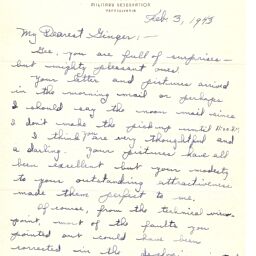 MILITARY RESERVATION
PENNSYLVANIA
Feb. 3, 1943
My Dearest Ginger:-
Gee, you are full of surprises –
but mighty pleasant ones.
Your letter and pictures arrived
in the morning mail or perhaps
I should say the noon mail since
I don't make the pickup until
I think you are very thoughtful and
a darling. Your pictures have all
been excellent but your modesty
to your outstanding attractiveness
made them perfect to me.
Of course, from the technical view-
point, most of the faults you
pointed out could have been
corrected in the